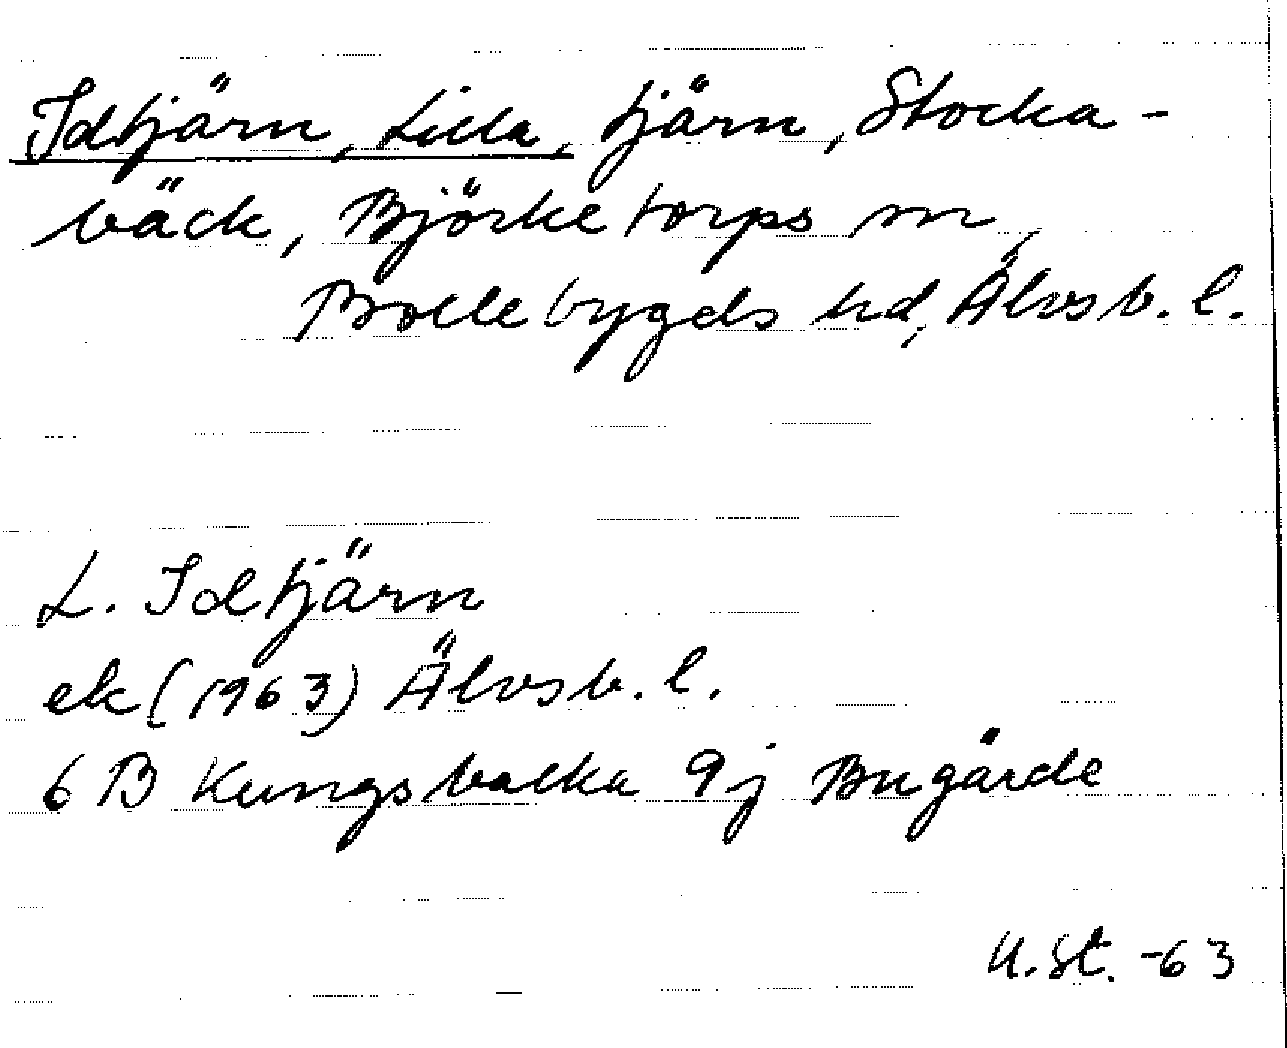 Idtjärn, Lilla, tjärn, Stocka-
bäck, Björketorps sn,
Bollebygds hd, Älvsb. l.
L. Idtjärn
ek (1963) Älvsb. l.
6 B Kungsbacka 9j Bugärde
U. St. -63